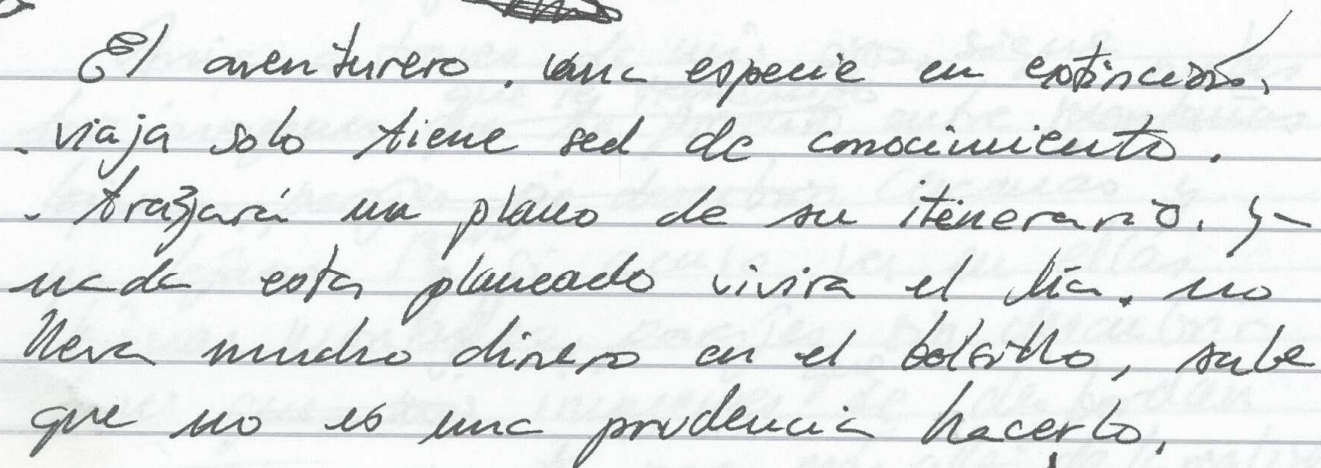 El aventurero. una especie en extinción,
. viaja solo tiene sed de conocimiento.
. trazará un plano de su itinerario. y
nada esta planeado vivira el día. no
lleva mucho dinero en el bolsillo, sabe
que no es una prudencia hacerlo,